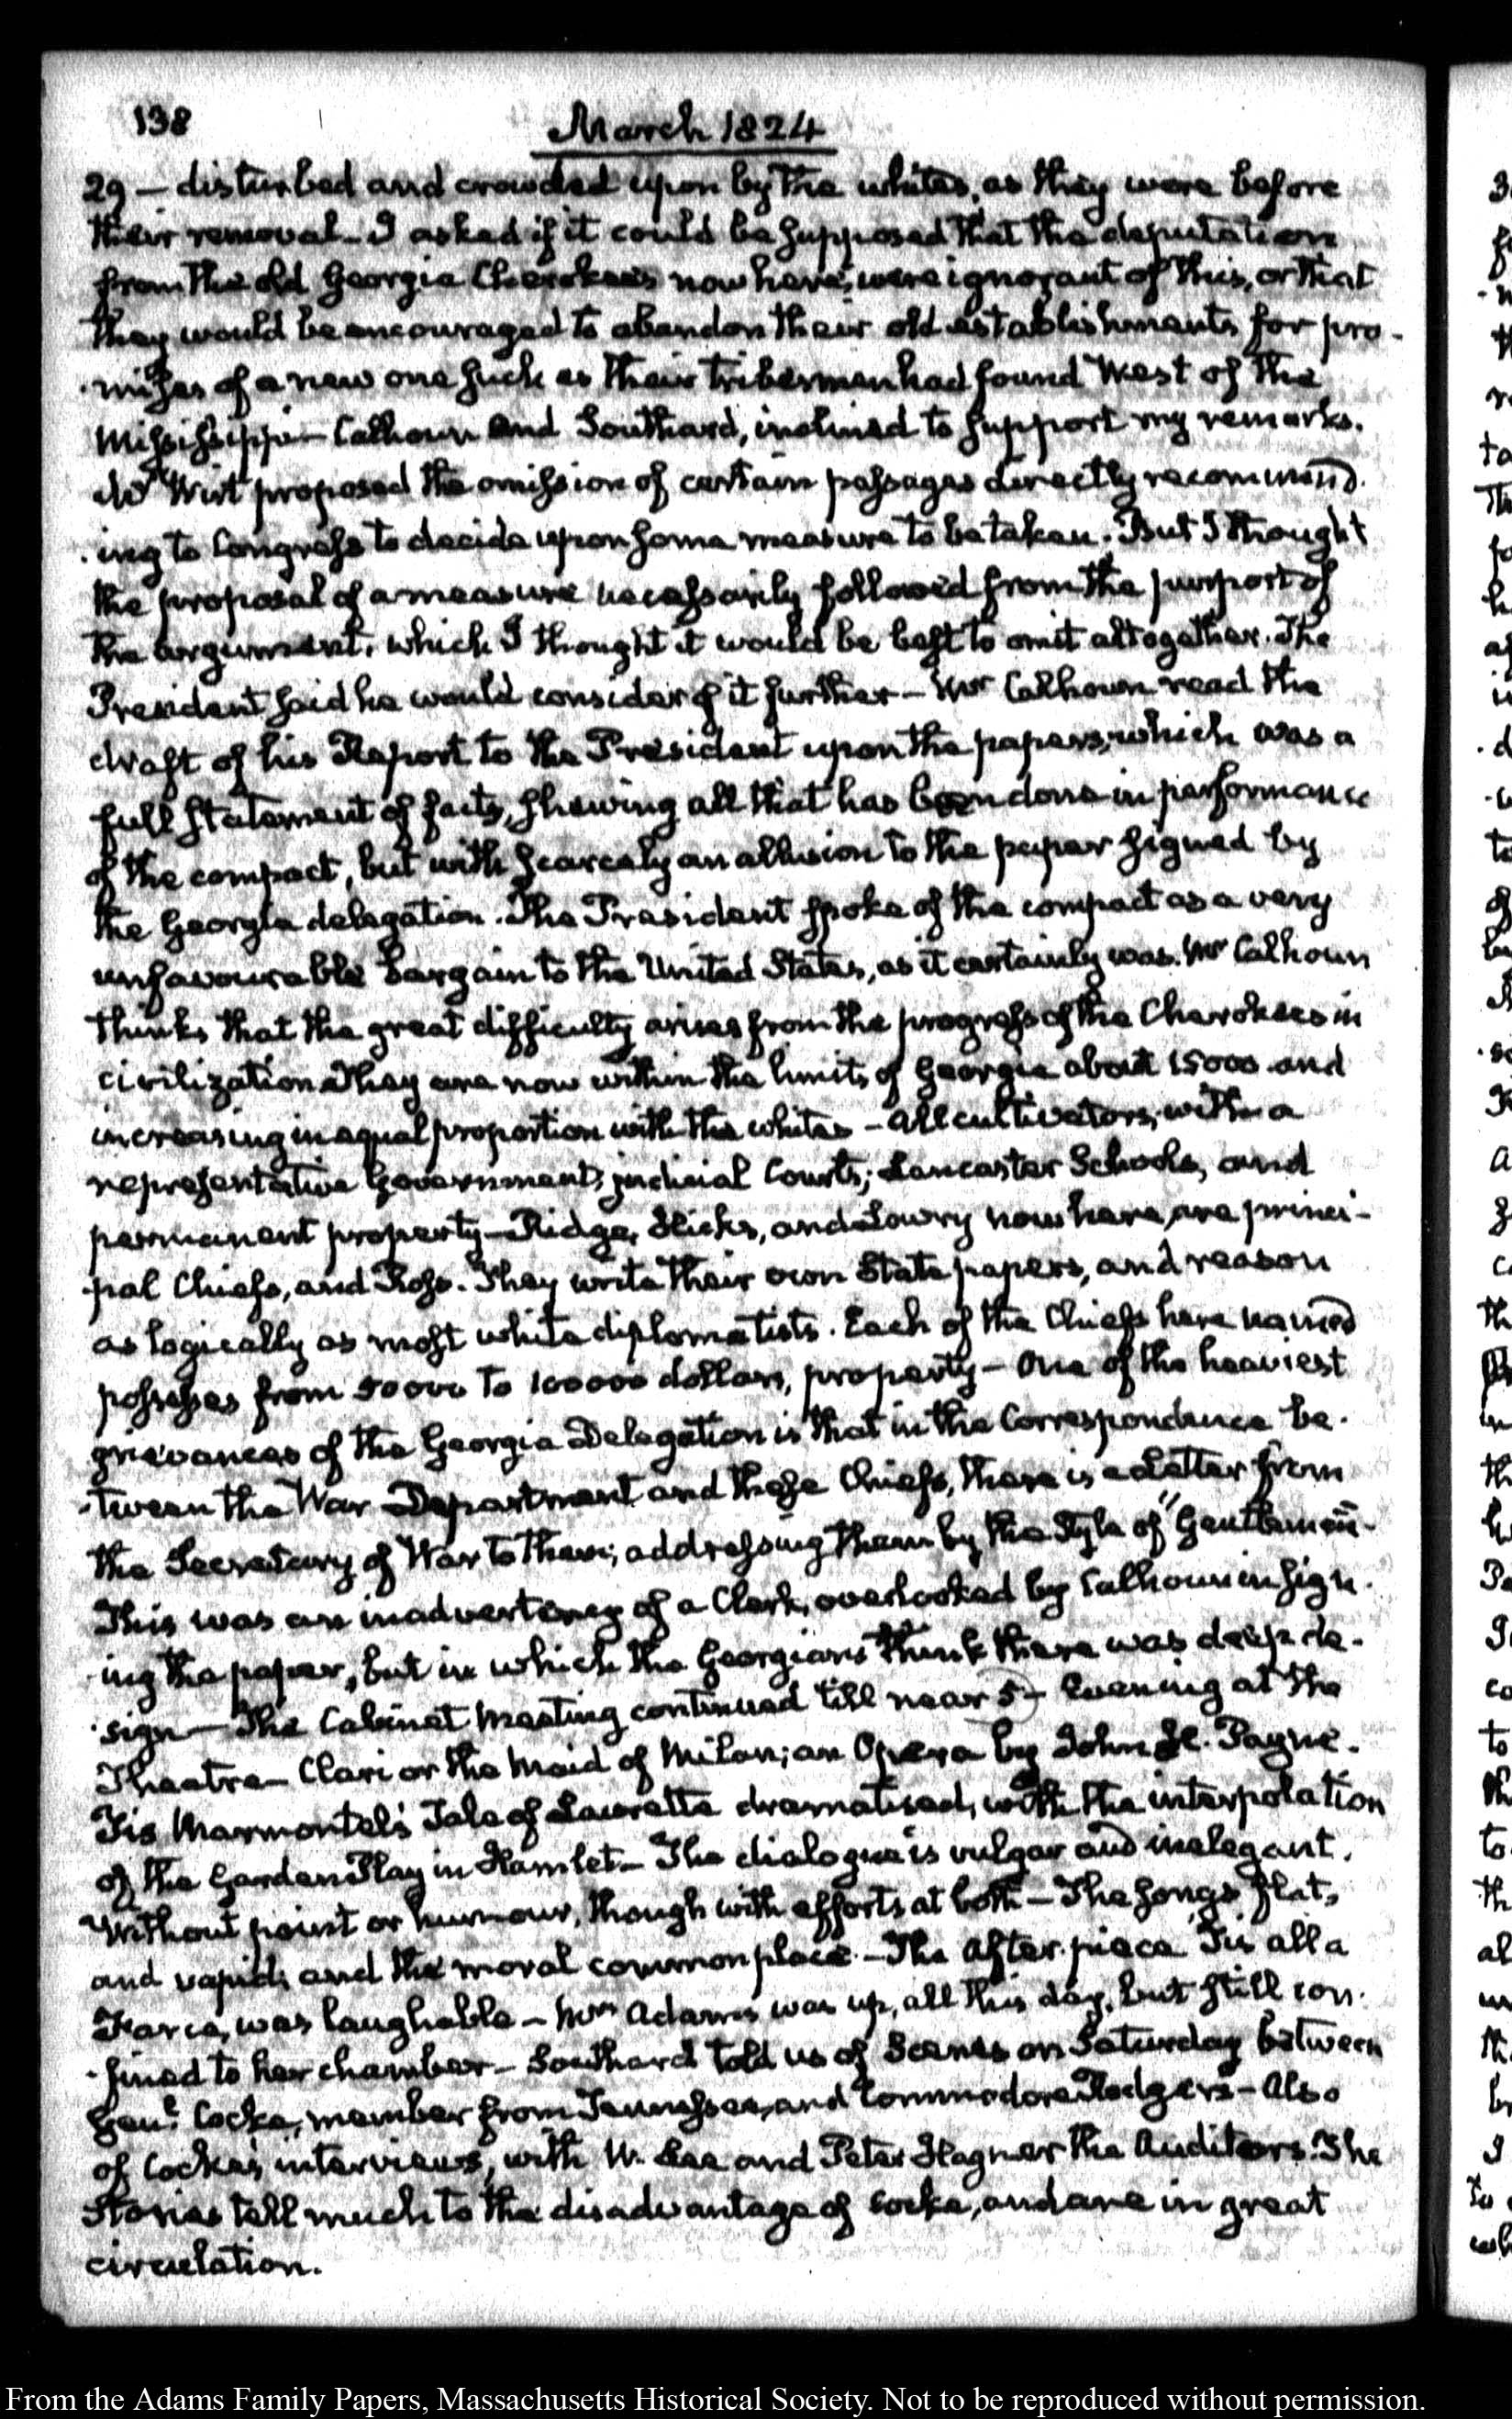 138
March 1824
29 — disturbed and crowded upon by the whites, as they were before
their removal — I asked if it could be supposed that the deputation
from the old Georgia Cherokees now here, were ignorant of this, or that
they would be encouraged to abandon their old establishments for pro-
-mises of a new one such as their tribesmen had found West of the
Mississippi — Calhoun and Southard, inclined to support my remarks.
Mr Wirt proposed the omission of certain passages directly recommend-
-ing to Congress to decide upon some measure to be taken. But I thought
the proposal of a measure necessarily followed from the purport of
the argument, which I thought it would be best to omit altogether. The
President said he would consider of it further — Mr Calhoun read the
draft of his Report to the President upon the papers, which was a
full statement of facts, shewing all that has been done in performance
of the compact, but with scarcely an allusion to the paper signed by
the Georgia delegation. The President spoke of the compact as a very
unfavourable bargain to the United States, as it certainly was. Mr Calhoun
thinks that the great difficulty arises from the progress of the Cherokees in
civilization. They are now within the limits of Georgia about 15000 and
increasing in equal proportion with the whites — all cultivators, with a
representative Government, judicial Courts, Lancaster Schools, and
permanent property — Ridge, Hicks, and Lowry now here, are princi-
-pal Chiefs, and Ross. They write their own State papers, and reason
as logically as most white diplomatists. Each of the Chiefs here named
possesses from 50000 to 100000 dollars, property — One of the heaviest
grievances of the Georgia Delegation is that in the Correspondence be-
-tween the War Department and these Chiefs, there is a Letter from
the Secretary of War to them, addressing them by the style of "Gentlemen"-
This was an inadvertency of a Clerk, overlooked by Calhoun in sign-
-ing the paper, but in which the Georgians think there was deep de-
-sign — The Cabinet Meeting continued till near 5 — Evening at the
Theatre — Clari or the Maid of Milan; an Opera by John H. Payne.
Tis Marmontel's Tale of Lauretta dramatised, with the interpolation
of the Garden Play in Hamlet — The dialogue is vulgar and inelegant.
Without point or humour, though with efforts at both — The songs flat,
and vapid; and the moral common place — The After-piece 'Tis all a
Farce, was laughable — Mrs Adams was up, all this day, but still con-
-fined to her chamber — Southard told us of Scenes on Saturday between
Genl. Cocke, member from Tennessee, and Commodore Rodgers — Also
of Cocke's interviews, with W. Lee and Peter Hagner the Auditors. The
Stories tell much to the disadvantage of Cocke, and are in great
circulation.
From the Adams Family Papers, Massachusetts Historical Society. Not to be reproduced without permission.